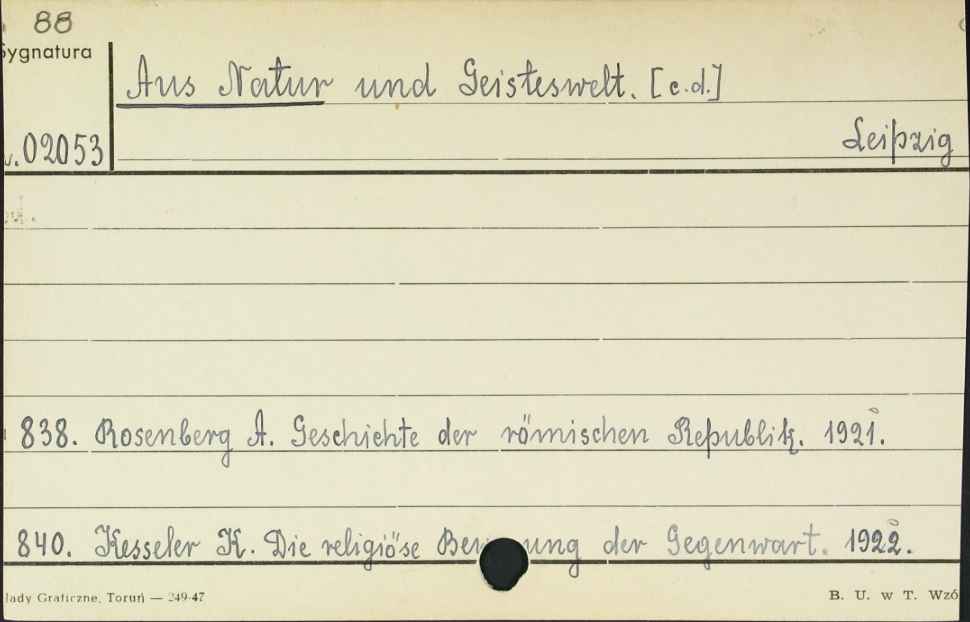 88
Sygnatura
Aus Natur und Geisteswelt. [c.d.]
02053
Leipzig
838. Rosenberg A. Geschichte der römischen Republik. 1921.
840. Kesseler K. Die religiöse Be ung der Gegenwart. 1922.
łady Graficzne, Toruń — 249-47
B. U. w T. Wzó